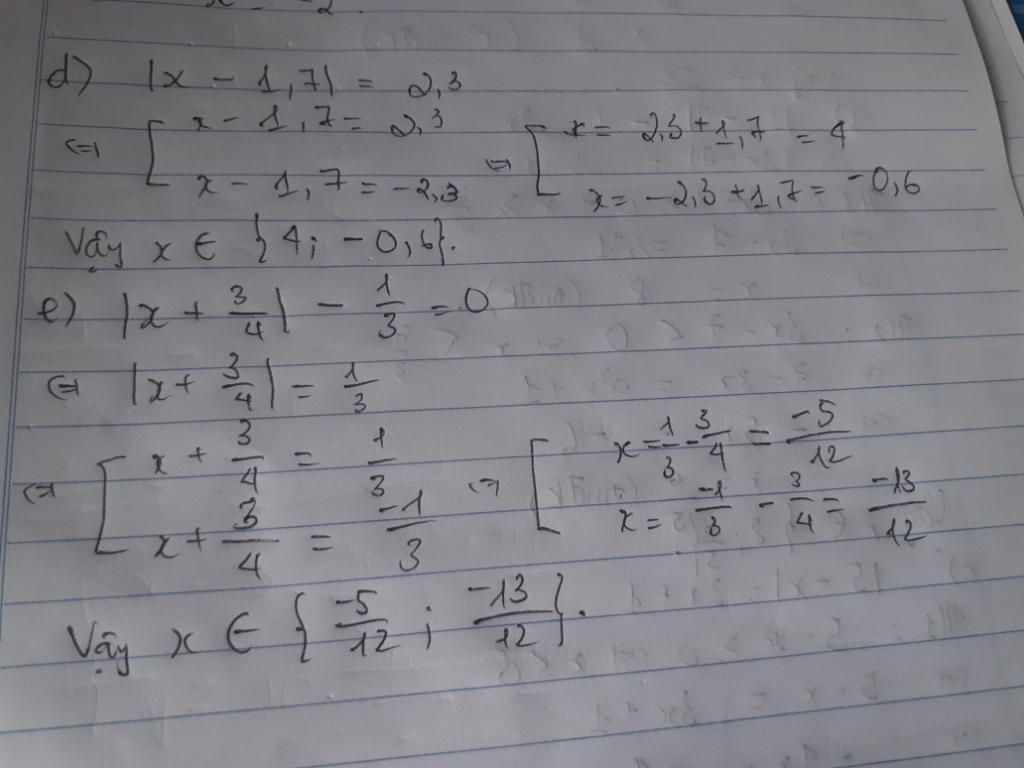 x = -2.
d) |x - 1,7| = 2,3
⇔ [ x - 1,7 = 2,3 ⇔ [ x = 2,3 + 1,7 = 4
x - 1,7 = -2,3 x = -2,3 + 1,7 = -0,6
Vậy x ∈ {4; -0,6}.
e) |x + 3/4| - 1/3 = 0
⇔ |x + 3/4| = 1/3
⇔ [ x + 3/4 = 1/3 ⇔ [ x = 1/3 - 3/4 = -5/12
x + 3/4 = -1/3 x = -1/3 - 3/4 = -13/12
Vậy x ∈ {-5/12; -13/12}.